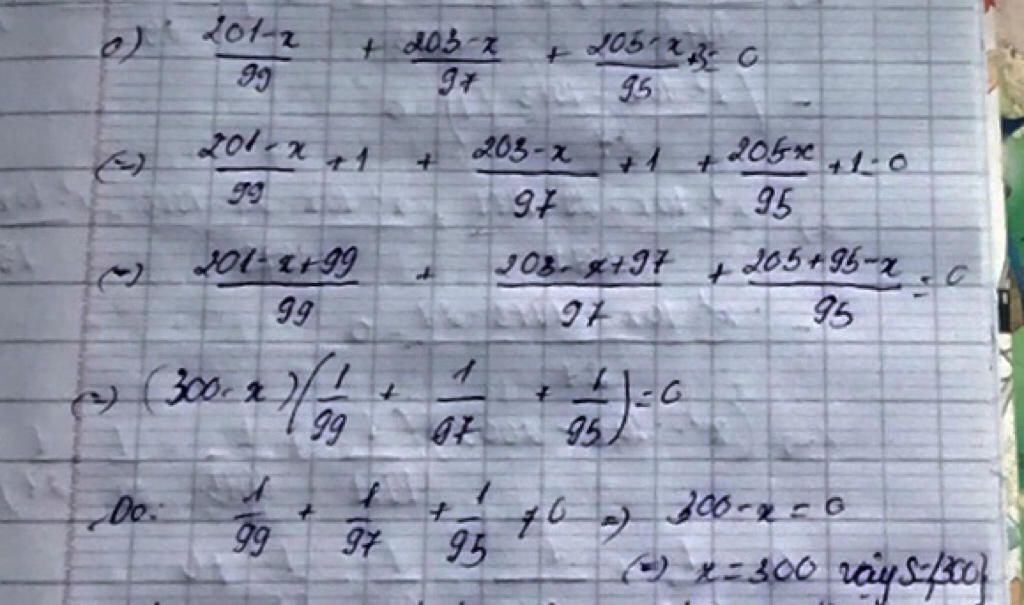 a) \frac{201-x}{99} + \frac{203-x}{97} + \frac{205-x}{95} + 3 = 0
(=) \frac{201-x}{99} + 1 + \frac{203-x}{97} + 1 + \frac{205-x}{95} + 1 = 0
(=) \frac{201-x+99}{99} + \frac{203-x+97}{97} + \frac{205+95-x}{95} = 0
(=) (300-x)(\frac{1}{99} + \frac{1}{97} + \frac{1}{95}) = 0
Do: \frac{1}{99} + \frac{1}{97} + \frac{1}{95} ≠ 0 =) 300-x = 0
(=) x = 300 vậy S={300}